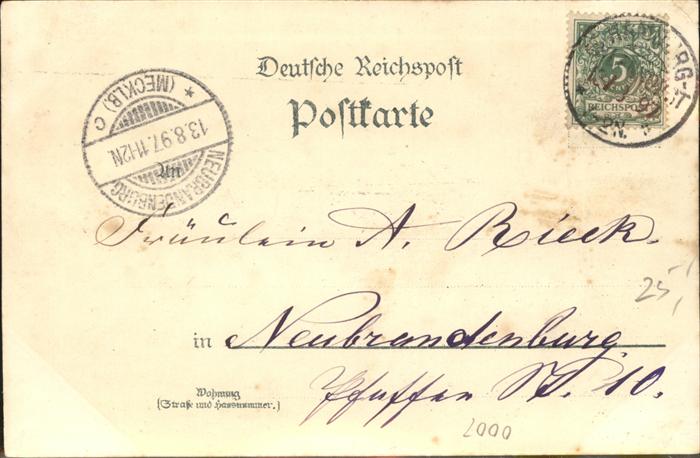 Deutsche Reichspost
Postkarte
5
REICHSPOST
NEUBRANDENBURG
13.8.97.11-12N.
* (MECKLB) C
An
Fräulein A. Rieck.
25,-
in Neubrandenburg
Wohnung
(Straße und Hausnummer.)
Pfaffen St. 10.
2000